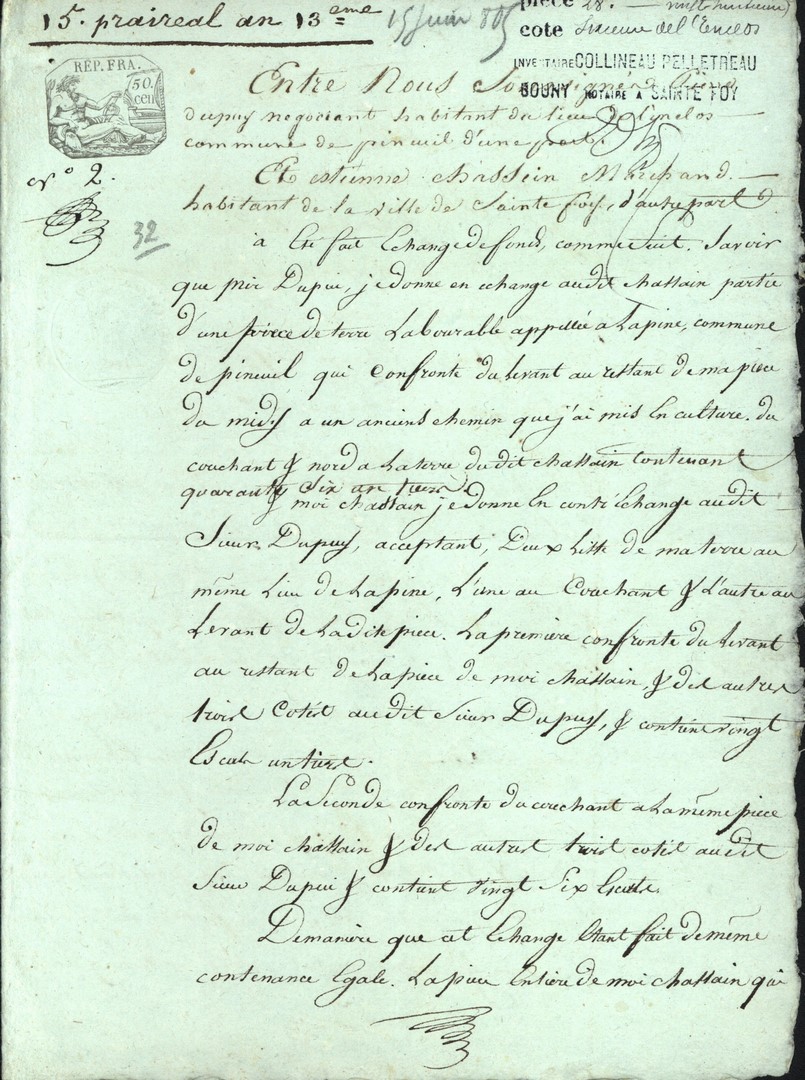 15. praireal an 13=eme
15 juin 805
pièce 28.
cote
INVENTAIRE COLLINEAU PELLETREAU
BOUNY NOTAIRE A SAINTE FOY
RÉP. FRA.
50.
cen
Entre Nous Soussignés
dupuy negociant habitant du lieu de Lenclos
commune de pineuil d'une part.
N° 2.
Et estienne chassein Marchand.
habitant de la ville de Sainte foy, d'autre part
32
à Eté fait Echange de fonds, comme Suit. Savoir
que moi Dupui, je donne en echange audit chassain partie
d'une pièce de terre Labourable appellée a Lapine, commune
de pineuil qui Confronte du Levant au restant de ma pièce
du midy a un anciens chemin que j'ai mis En culture. du
couchant & nord a La terre du dit chassain Contenant
quarante Six un tiers
& moi chassain je donne En contr'Echange audit
Sieur Dupuy, acceptant, Deux Liste de ma terre au
même Lieu de Lapine, L'une au Couchant & L'autre au
Levant de Ladite piece. La première confronte du Levant
au restant de La piece de moi chassain, & des autres
trois Cotés audit Sieur Dupuy, & contient vingt
Escats un tiers.
La Seconde confronte du couchant a La même pièce
de moi chassain & des autres trois cotés audit
Sieur Dupui & contient vingt Six Escats.
De manière que cet Echange Etant fait de même
contenance Egale. La piece Entière de moi chassain qui